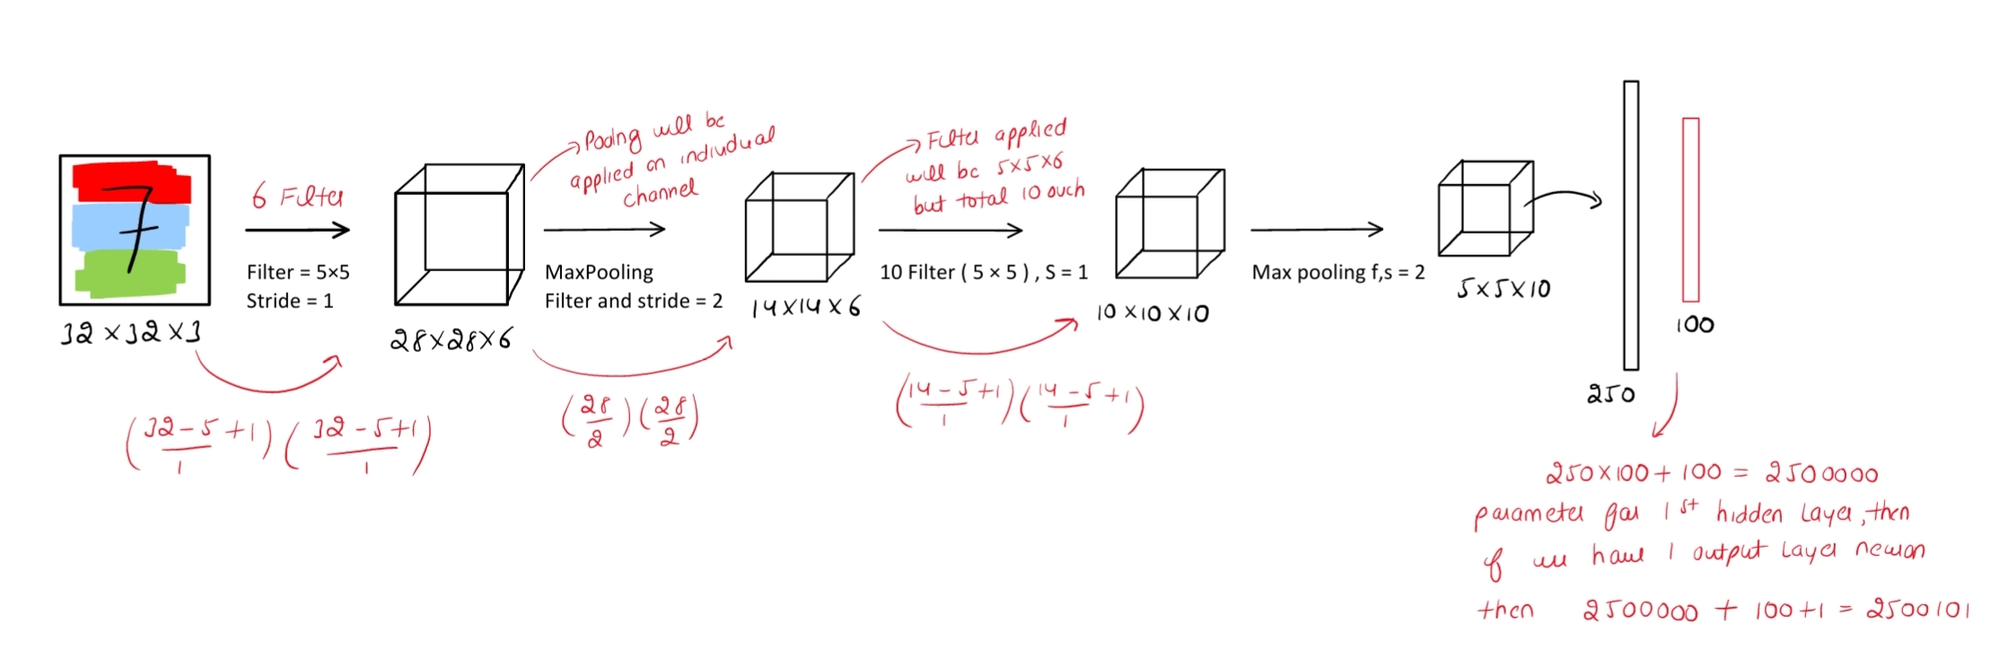 7
32 × 32 × 3
6 Filter
Filter = 5×5
Stride = 1
(32-5/1 +1) (32-5+1/1)
28×28×6
Pooling will be
applied on individual
channel
MaxPooling
Filter and stride = 2
(28/2) (28/2)
14×14×6
Filter applied
will be 5×5×6
but total 10 such
10 Filter ( 5 × 5 ) , S = 1
(14-5/1 +1) (14-5/1 +1)
10 ×10 ×10
Max pooling f,s = 2
5×5×10
250
100
250×100 + 100 = 2500000
parameter for 1st hidden Layer, then
if we have 1 output Layer neuron
then 2500000 + 100+1 = 2500101